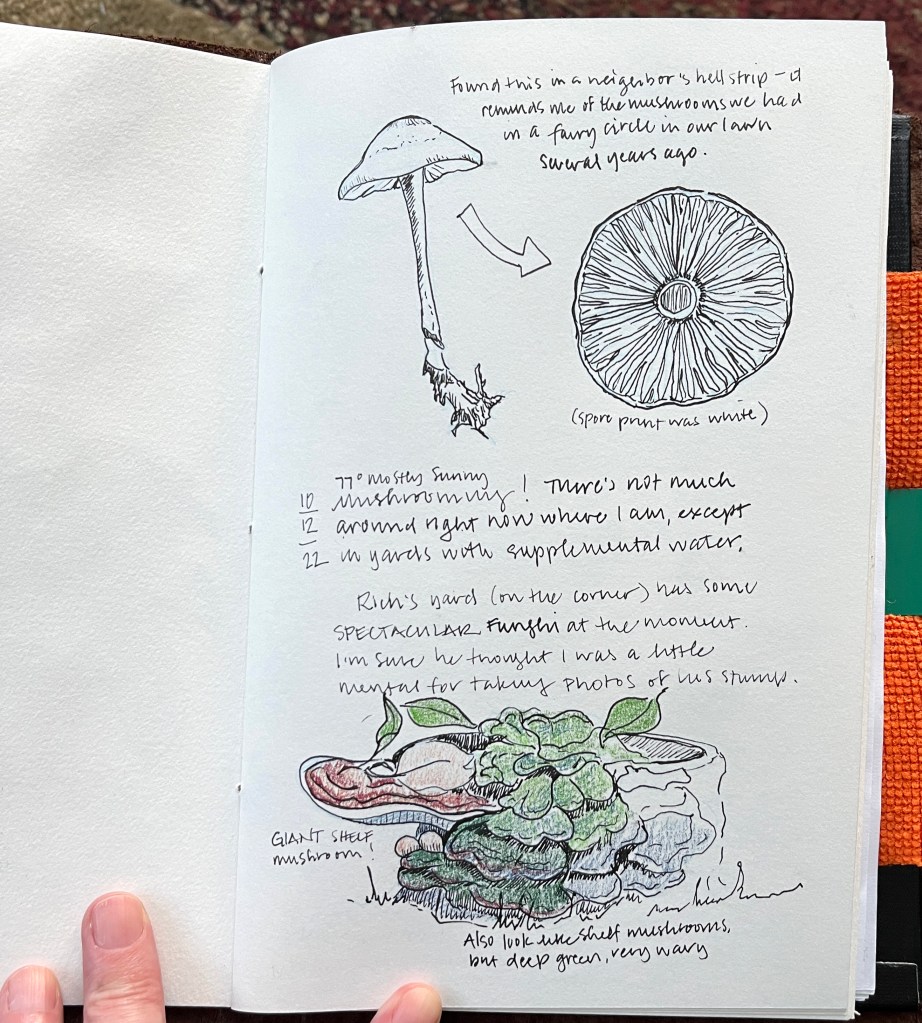 Found this in a neigerbor's hellstrip - it
reminds me of the mushrooms we had
in a fairy circle in our lawn
several years ago.
(spore print was white)
77° mostly sunny
10
12
22
mushrooming! There's not much
around right now where I am, except
in yards with supplemental water.
Rich's yard (on the corner) has some
SPECTACULAR Funghi at the moment.
I'm sure he thought I was a little
mental for taking photos of his stump.
GIANT SHELF
mushroom!
Also look like shelf mushrooms,
but deep green, very wavy